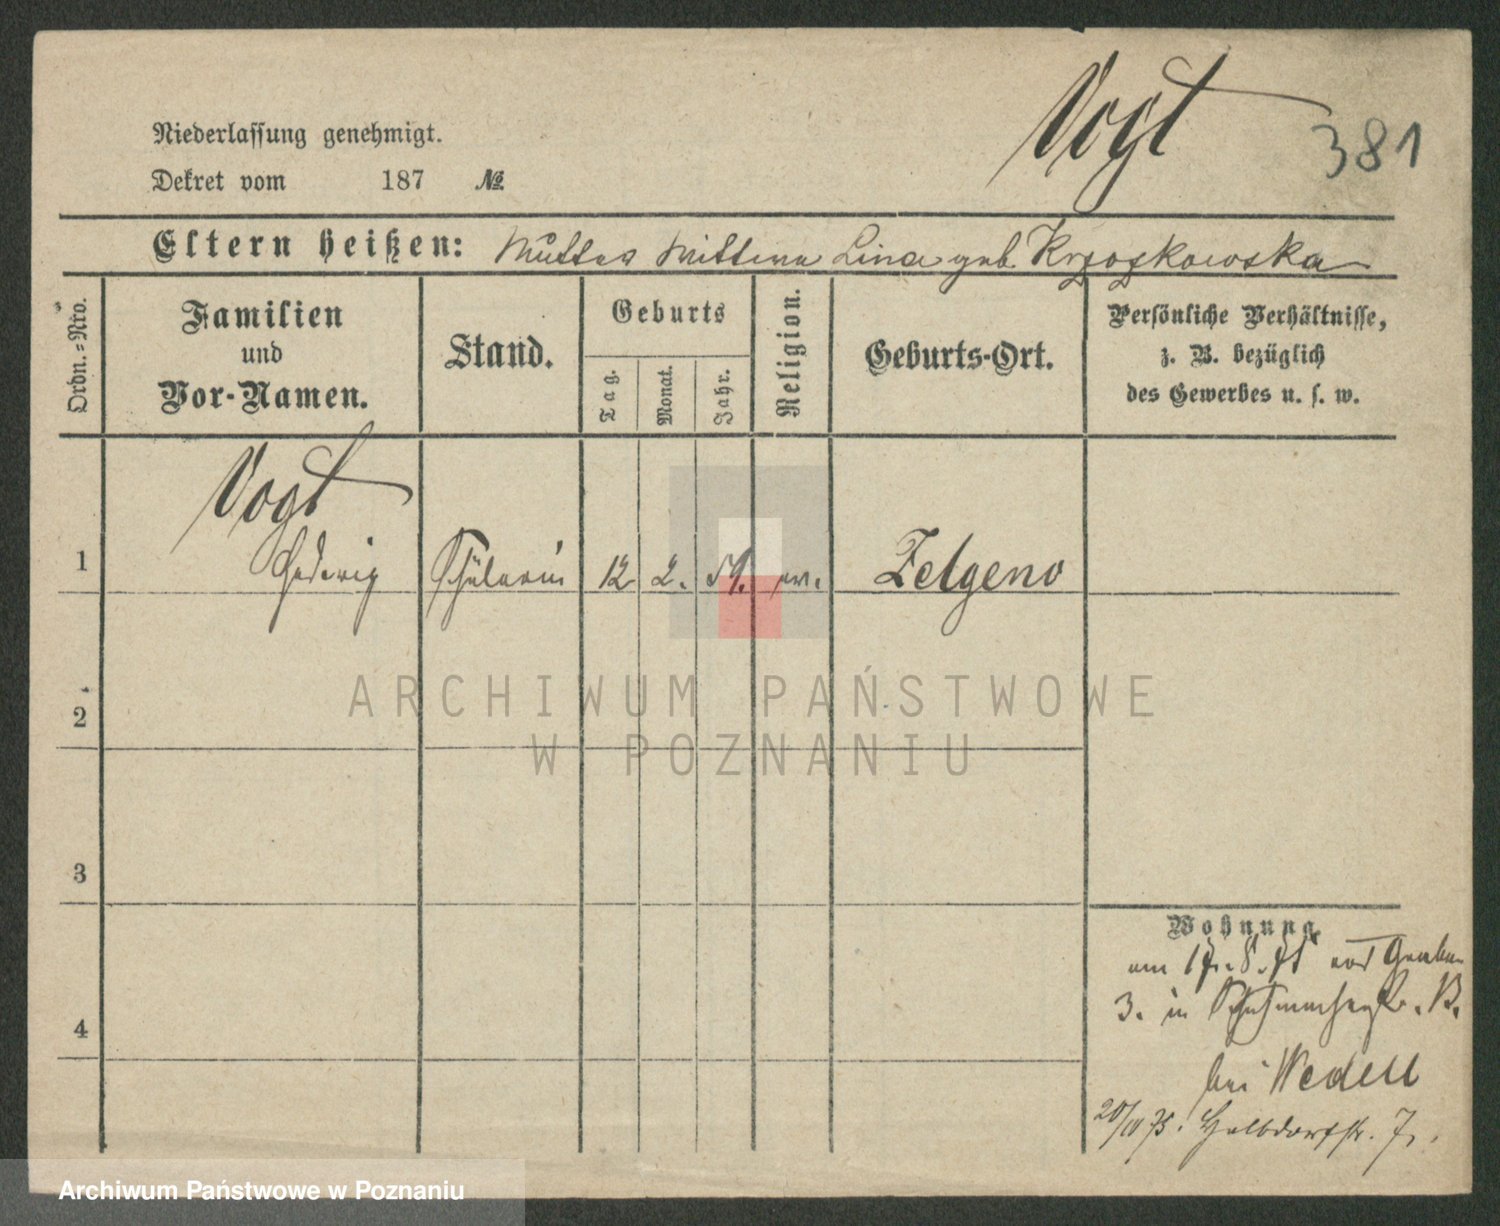 Vogt
381
Niederlassung genehmigt.
Dekret vom 187 №
Eltern heißen: Mutter Wittwe Lina geb. Krzoskowska
Ordn.-Nro.
Familien
und
Vor-Namen.
Stand.
Geburts
Tag.
Monat.
Jahr.
Religion.
Geburts-Ort.
Persönliche Verhältnisse,
z. B. bezüglich
des Gewerbes u. s. w.
Vogt
1 Hedwig Schülerin 12 2. 59. ev. Zelgeno
2
3
4
Wohnung
am 17.8.75 Graben
3. in Schuhmacherstr. 13.
bei Wedell
20/10 75. Halbdorfstr. 7.
ARCHIWUM PAŃSTWOWE
W POZNANIU
Archiwum Państwowe w Poznaniu